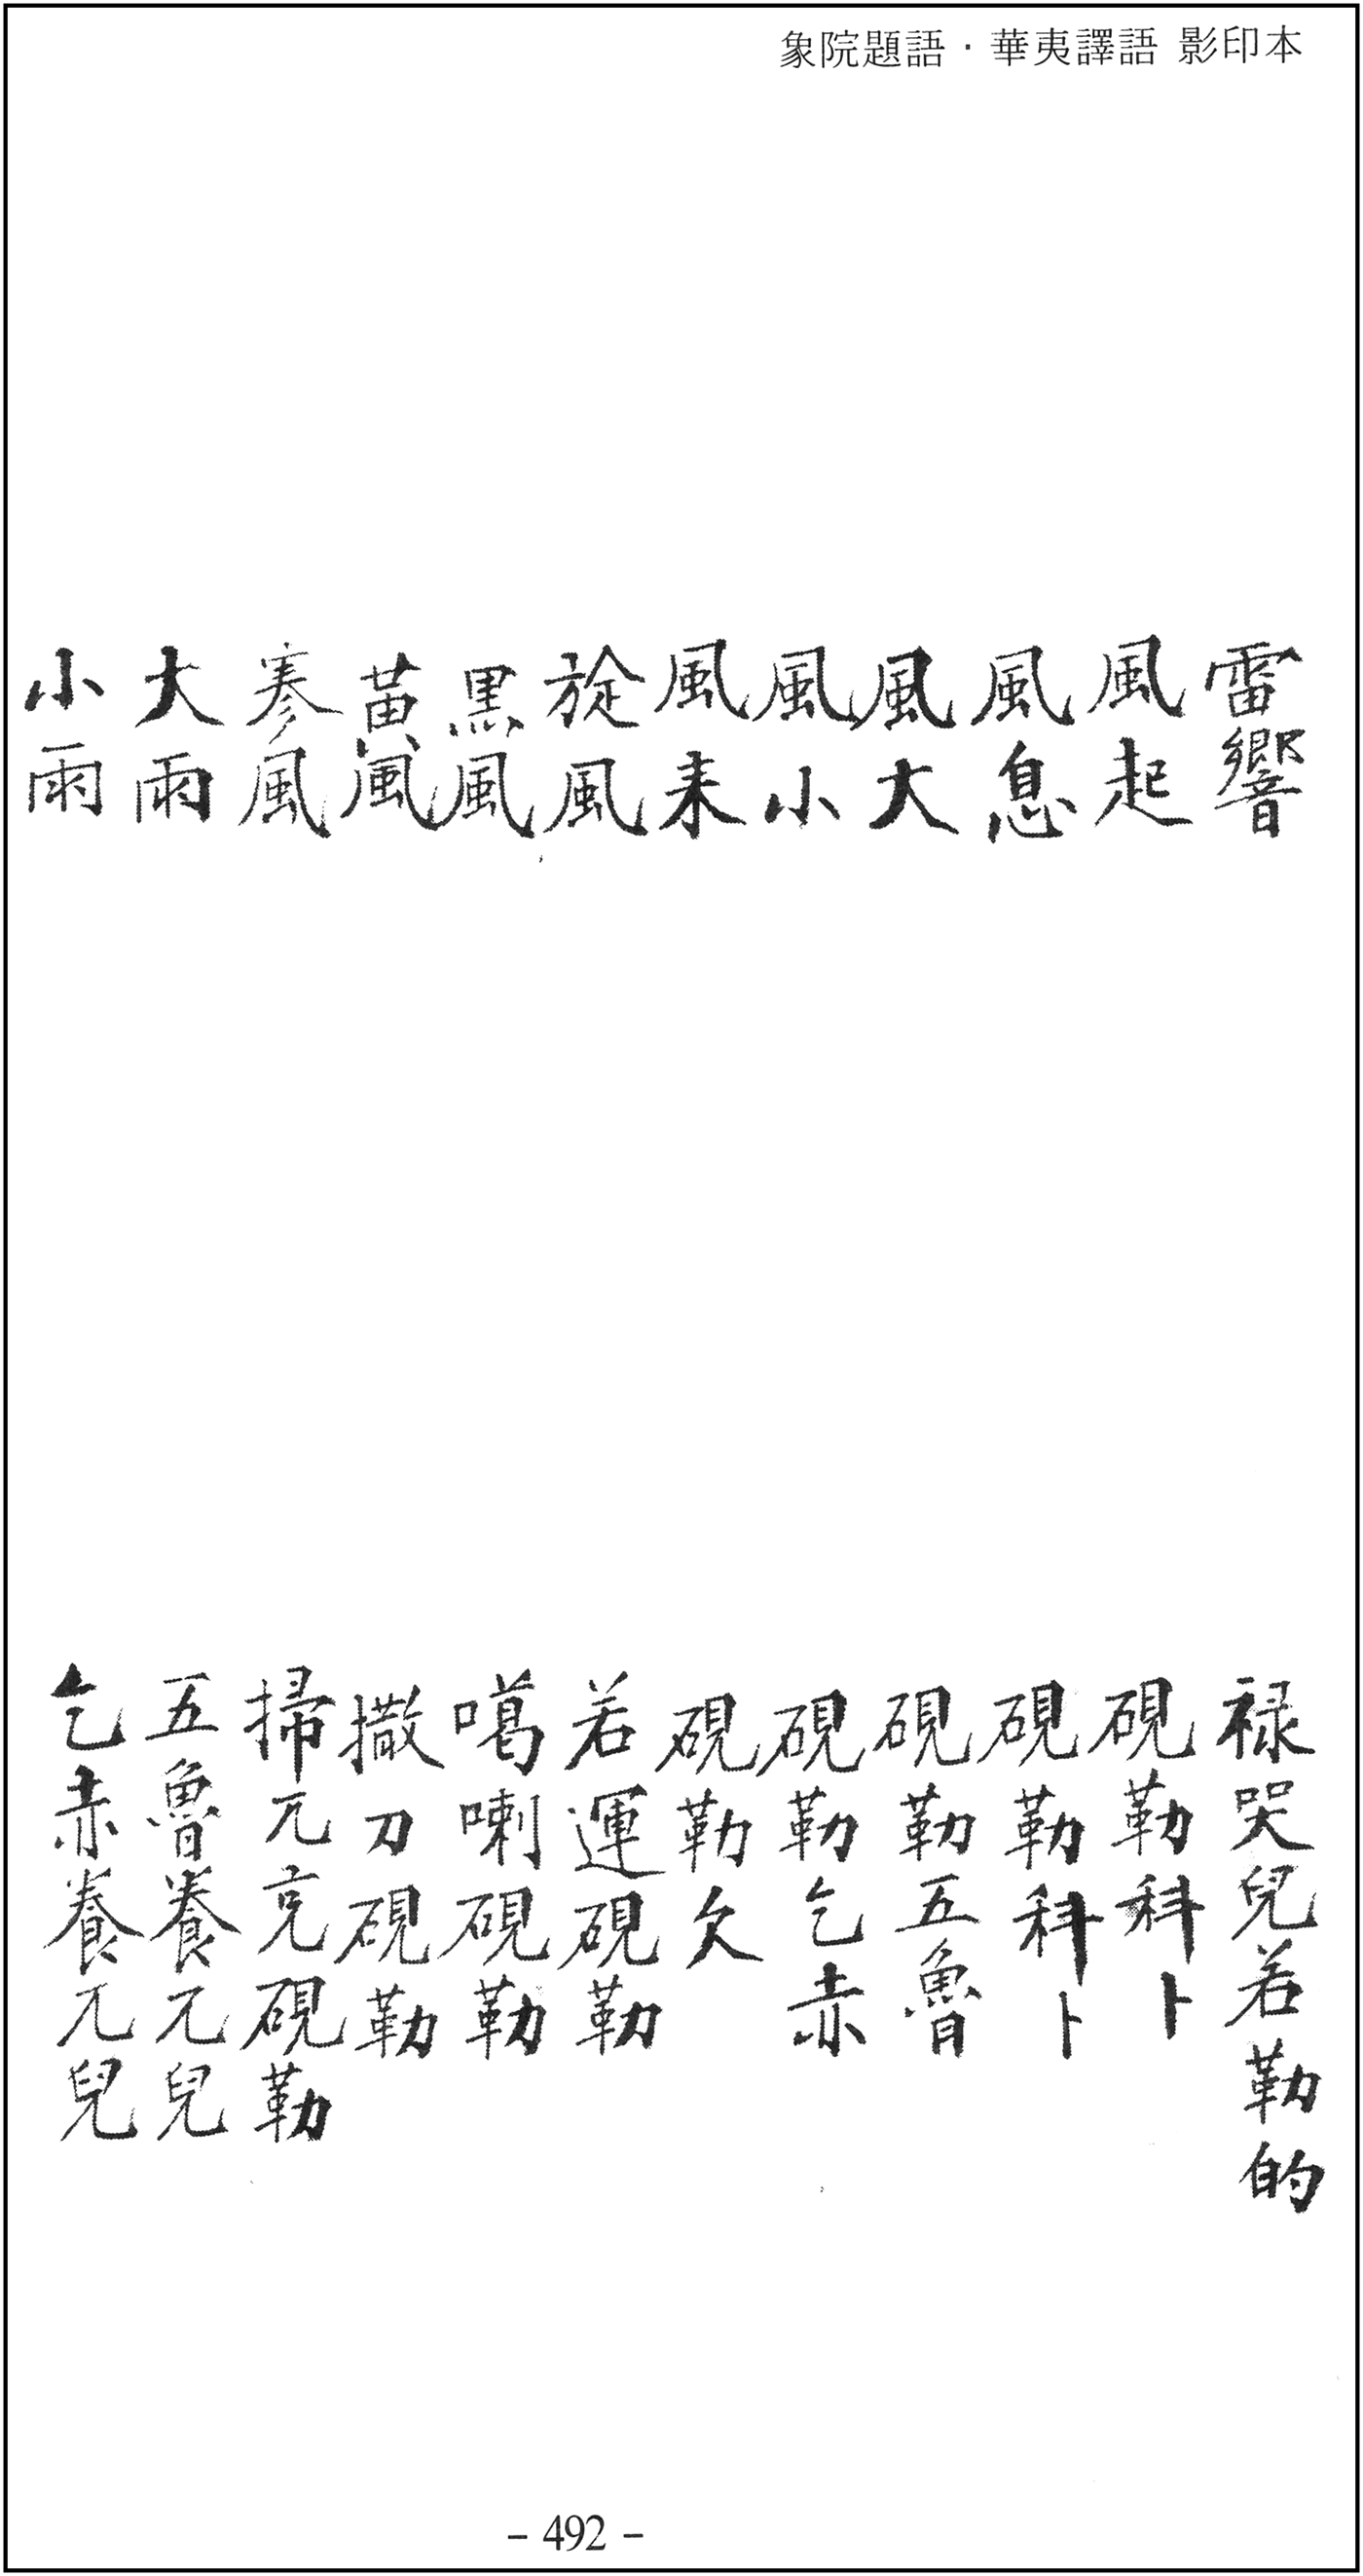 象院題語·華夷譯語 影印本
雷響
禄哭兒若勒的
風起
硯勒科卜
風息
硯勒科卜
風大
硯勒五魯
風小
硯勒乞赤
風来
硯勒欠
旋風
若運硯勒
黒風
噶喇硯勒
黃風
撒刀硯勒
寒風
掃兀克硯勒
大雨
五魯養兀兒
小雨
乞赤養兀兒
- 492 -